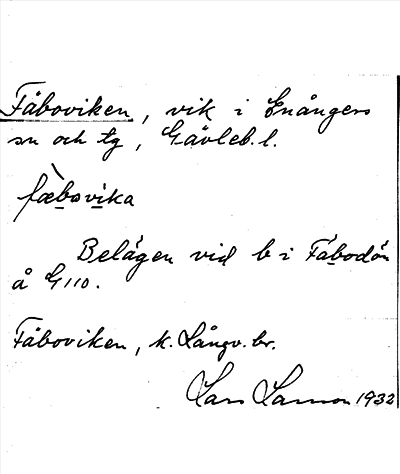 Fäboviken, vik i Enångers
sn och tg, Gävleb. l.
fæ̀bovika
Belägen vid b i Fäbodön
å G 110.
Fäboviken, k. Långv. br.
Lars Larsson 1932